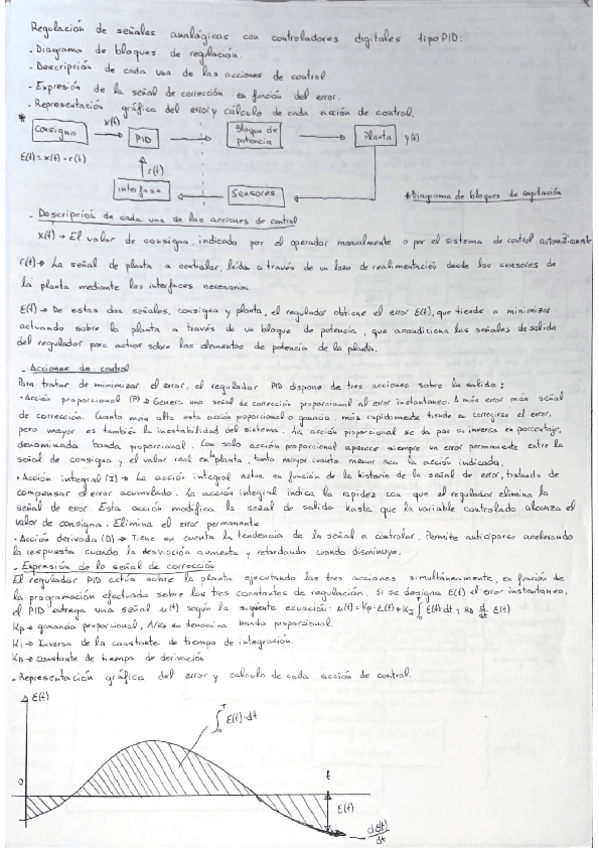 Regulación de señales analógicas con controladores digitales tipo PID:
- Diagrama de bloques de regulación.
- Descripción de cada una de las acciones de control
- Expresión de la señal de corrección en función del error.
- Representación gráfica del error y cálculo de cada acción de control.
* Consigna x(t) PID Bloque de potencia Planta y(t)
E(t) = x(t) - r(t)
r(t)
interfase Sensores
* Diagrama de bloques de regulación
- Descripción de cada una de las acciones de control
x(t) → El valor de consigna, indicado por el operador manualmente o por el sistema de control automáticamente
r(t) → La señal de planta a controlar, leída a través de un lazo de realimentación desde los sensores de
la planta mediante los interfaces necesarios.
E(t) → De estas dos señales, consigna y planta, el regulador obtiene el error E(t), que tiende a minimizar
actuando sobre la planta a través de un bloque de potencia, que acondiciona las señales de salida
del regulador para actuar sobre los elementos de potencia de la planta.
- Acciones de control
Para tratar de minimizar el error, el regulador PID dispone de tres acciones sobre la salida:
· Acción proporcional (P) → Genera una señal de corrección proporcional al error instantáneo. A más error más señal
de corrección. Cuanto más alta esta acción proporcional o ganancia, más rapidamente tiende a corregirse el error,
pero mayor es también la inestabilidad del sistema. La acción proporcional se da por su inversa en porcentaje,
denominada banda proporcional. Con solo acción proporcional aparece siempre un error permanente entre la
señal de consigna y el valor real en la planta, tanto mayor cuanto menor sea la acción indicada.
· Acción integral (I) → La acción integral actua en función de la historia de la señal de error, tratando de
compensar el error acumulado. La acción integral indica la rapidez con que el regulador elimina la
señal de error. Esta acción modifica la señal de salida hasta que la variable controlada alcanza el
valor de consigna. Elimina el error permanente
· Acción derivada (D) → Tiene en cuenta la tendencia de la señal a controlar. Permite anticiparse acelerando
la respuesta cuando la desviación aumenta y retardando cuando disminuye.
- Expresión de la señal de corrección
El regulador PID actúa sobre la planta ejecutando las tres acciones simultáneamente, en función de
la programación efectuada sobre las tres constantes de regulación. Si se designa E(t) el error instantáneo,
el PID entrega una señal u(t) según la siguiente ecuación: u(t) = Kp · E(t) + KI ∫ E(t) dt + KD d/dt E(t)
Kp → ganancia proporcional, 1/Kp se denomina banda proporcional.
Ki → Inversa de la constante de tiempo de integración.
KD → Constante de tiempo de derivación
- Representación gráfica del error y calculo de cada acción de control.
E(t)
∫ E(t)·dt
0 t
E(t)
dE(t)/dt